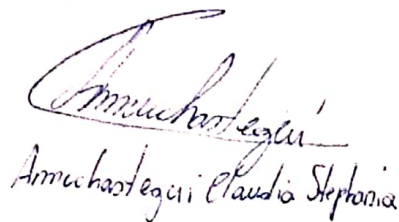 Amuchastegui
Amuchastegui Claudia Stephania